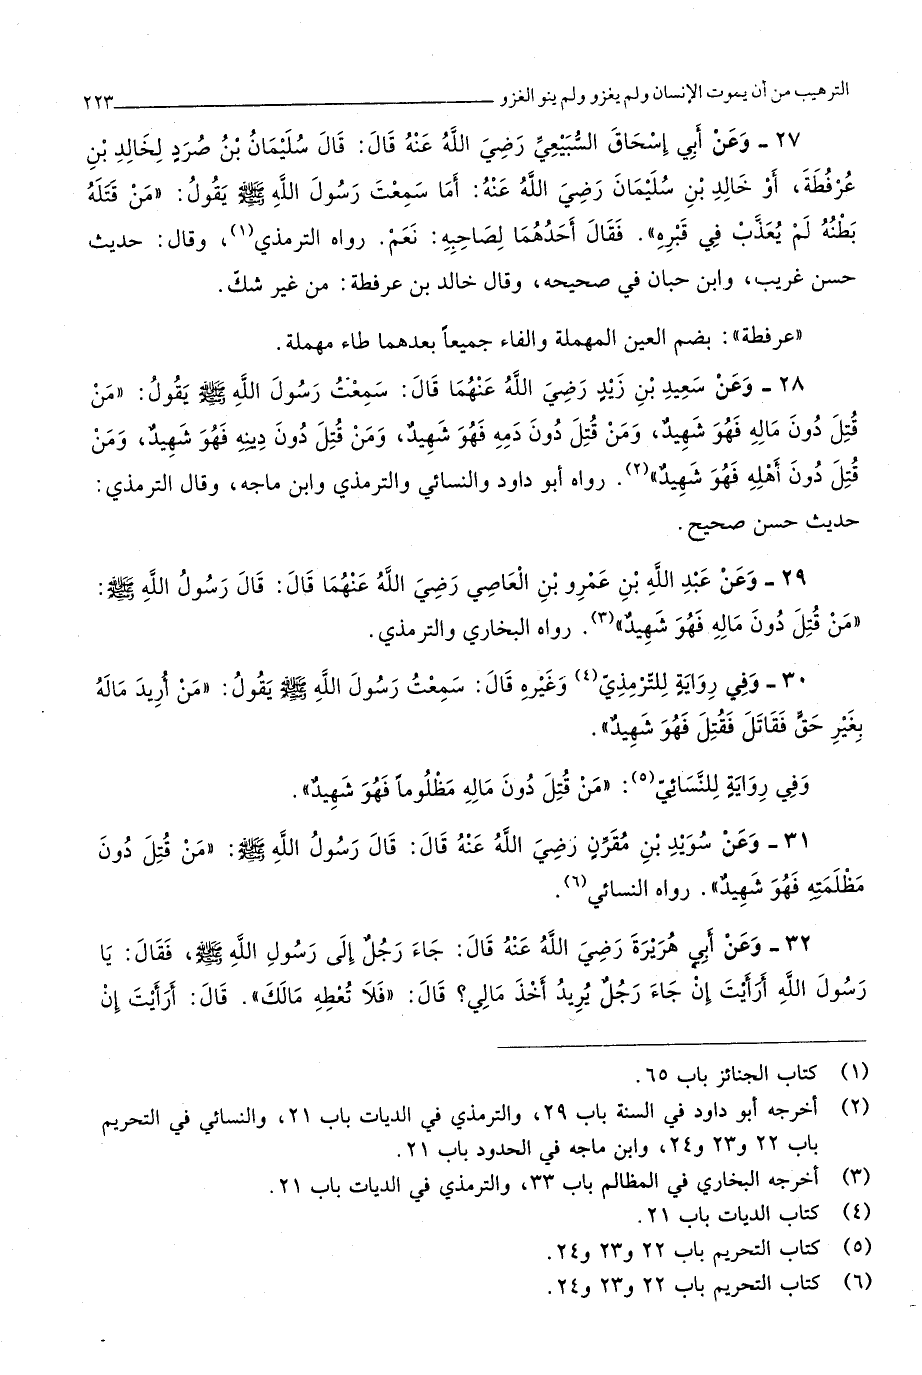 الترهيب من أن يموت الإنسان ولم يغزو ولم ينو الغزو ــــــ ٢٢٣
٢٧ ـ وَعَنْ أَبِي إِسْحَاقَ السُّبَيْعِيِّ رَضِيَ اللَّهُ عَنْهُ قَالَ: قَالَ سُلَيْمَانُ بْنُ صُرَدٍ لِخَالِدِ بْنِ
عُرْفُطَةَ، أَوْ خَالِدِ بْنِ سُلَيْمَانَ رَضِيَ اللَّهُ عَنْهُ: أَمَا سَمِعْتَ رَسُولَ اللَّهِ ﷺ يَقُولُ: «مَنْ قَتَلَهُ
بَطْنُهُ لَمْ يُعَذَّبْ فِي قَبْرِهِ». فَقَالَ أَحَدُهُمَا لِصَاحِبِهِ: نَعَمْ. رواه الترمذي(١)، وقال: حديث
حسن غريب، وابن حبان في صحيحه، وقال خالد بن عرفطة: من غير شكّ.
«عرفطة»: بضم العين المهملة والفاء جميعاً بعدهما طاء مهملة.
٢٨ ـ وَعَنْ سَعِيدِ بْنِ زَيْدٍ رَضِيَ اللَّهُ عَنْهُمَا قَالَ: سَمِعْتُ رَسُولَ اللَّهِ ﷺ يَقُولُ: «مَنْ
قُتِلَ دُونَ مَالِهِ فَهُوَ شَهِيدٌ، وَمَنْ قُتِلَ دُونَ دَمِهِ فَهُوَ شَهِيدٌ، وَمَنْ قُتِلَ دُونَ دِينِهِ فَهُوَ شَهِيدٌ، وَمَنْ
قُتِلَ دُونَ أَهْلِهِ فَهُوَ شَهِيدٌ»(٢). رواه أبو داود والنسائي والترمذي وابن ماجه، وقال الترمذي:
حديث حسن صحيح.
٢٩ ـ وَعَنْ عَبْدِ اللَّهِ بْنِ عَمْرِو بْنِ الْعَاصِي رَضِيَ اللَّهُ عَنْهُمَا قَالَ: قَالَ رَسُولُ اللَّهِ ﷺ:
«مَنْ قُتِلَ دُونَ مَالِهِ فَهُوَ شَهِيدٌ»(٣). رواه البخاري والترمذي.
٣٠ ـ وَفِي رِوَايَةٍ لِلتِّرْمِذِيِّ(٤) وَغَيْرِهِ قَالَ: سَمِعْتُ رَسُولَ اللَّهِ ﷺ يَقُولُ: «مَنْ أُرِيدَ مَالُهُ
بِغَيْرِ حَقٍّ فَقَاتَلَ فَقُتِلَ فَهُوَ شَهِيدٌ».
وَفِي رِوَايَةٍ لِلنَّسَائِيِّ(٥): «مَنْ قُتِلَ دُونَ مَالِهِ مَظْلُوماً فَهُوَ شَهِيدٌ».
٣١ ـ وَعَنْ سُوَيْدِ بْنِ مُقَرِّنٍ رَضِيَ اللَّهُ عَنْهُ قَالَ: قَالَ رَسُولُ اللَّهِ ﷺ: «مَنْ قُتِلَ دُونَ
مَظْلَمَتِهِ فَهُوَ شَهِيدٌ». رواه النسائي(٦).
٣٢ ـ وَعَنْ أَبِي هُرَيْرَةَ رَضِيَ اللَّهُ عَنْهُ قَالَ: جَاءَ رَجُلٌ إِلَى رَسُولِ اللَّهِ ﷺ، فَقَالَ: يَا
رَسُولَ اللَّهِ أَرَأَيْتَ إِنْ جَاءَ رَجُلٌ يُرِيدُ أَخْذَ مَالِي؟ قَالَ: «فَلَا تُعْطِهِ مَالَكَ». قَالَ: أَرَأَيْتَ إِنْ
(١) كتاب الجنائز باب ٦٥.
(٢) أخرجه أبو داود في السنة باب ٢٩، والترمذي في الديات باب ٢١، والنسائي في التحريم
باب ٢٢ و٢٣ و٢٤، وابن ماجه في الحدود باب ٢١.
(٣) أخرجه البخاري في المظالم باب ٣٣، والترمذي في الديات باب ٢١.
(٤) كتاب الديات باب ٢١.
(٥) كتاب التحريم باب ٢٢ و٢٣ و٢٤.
(٦) كتاب التحريم باب ٢٢ و٢٣ و٢٤.